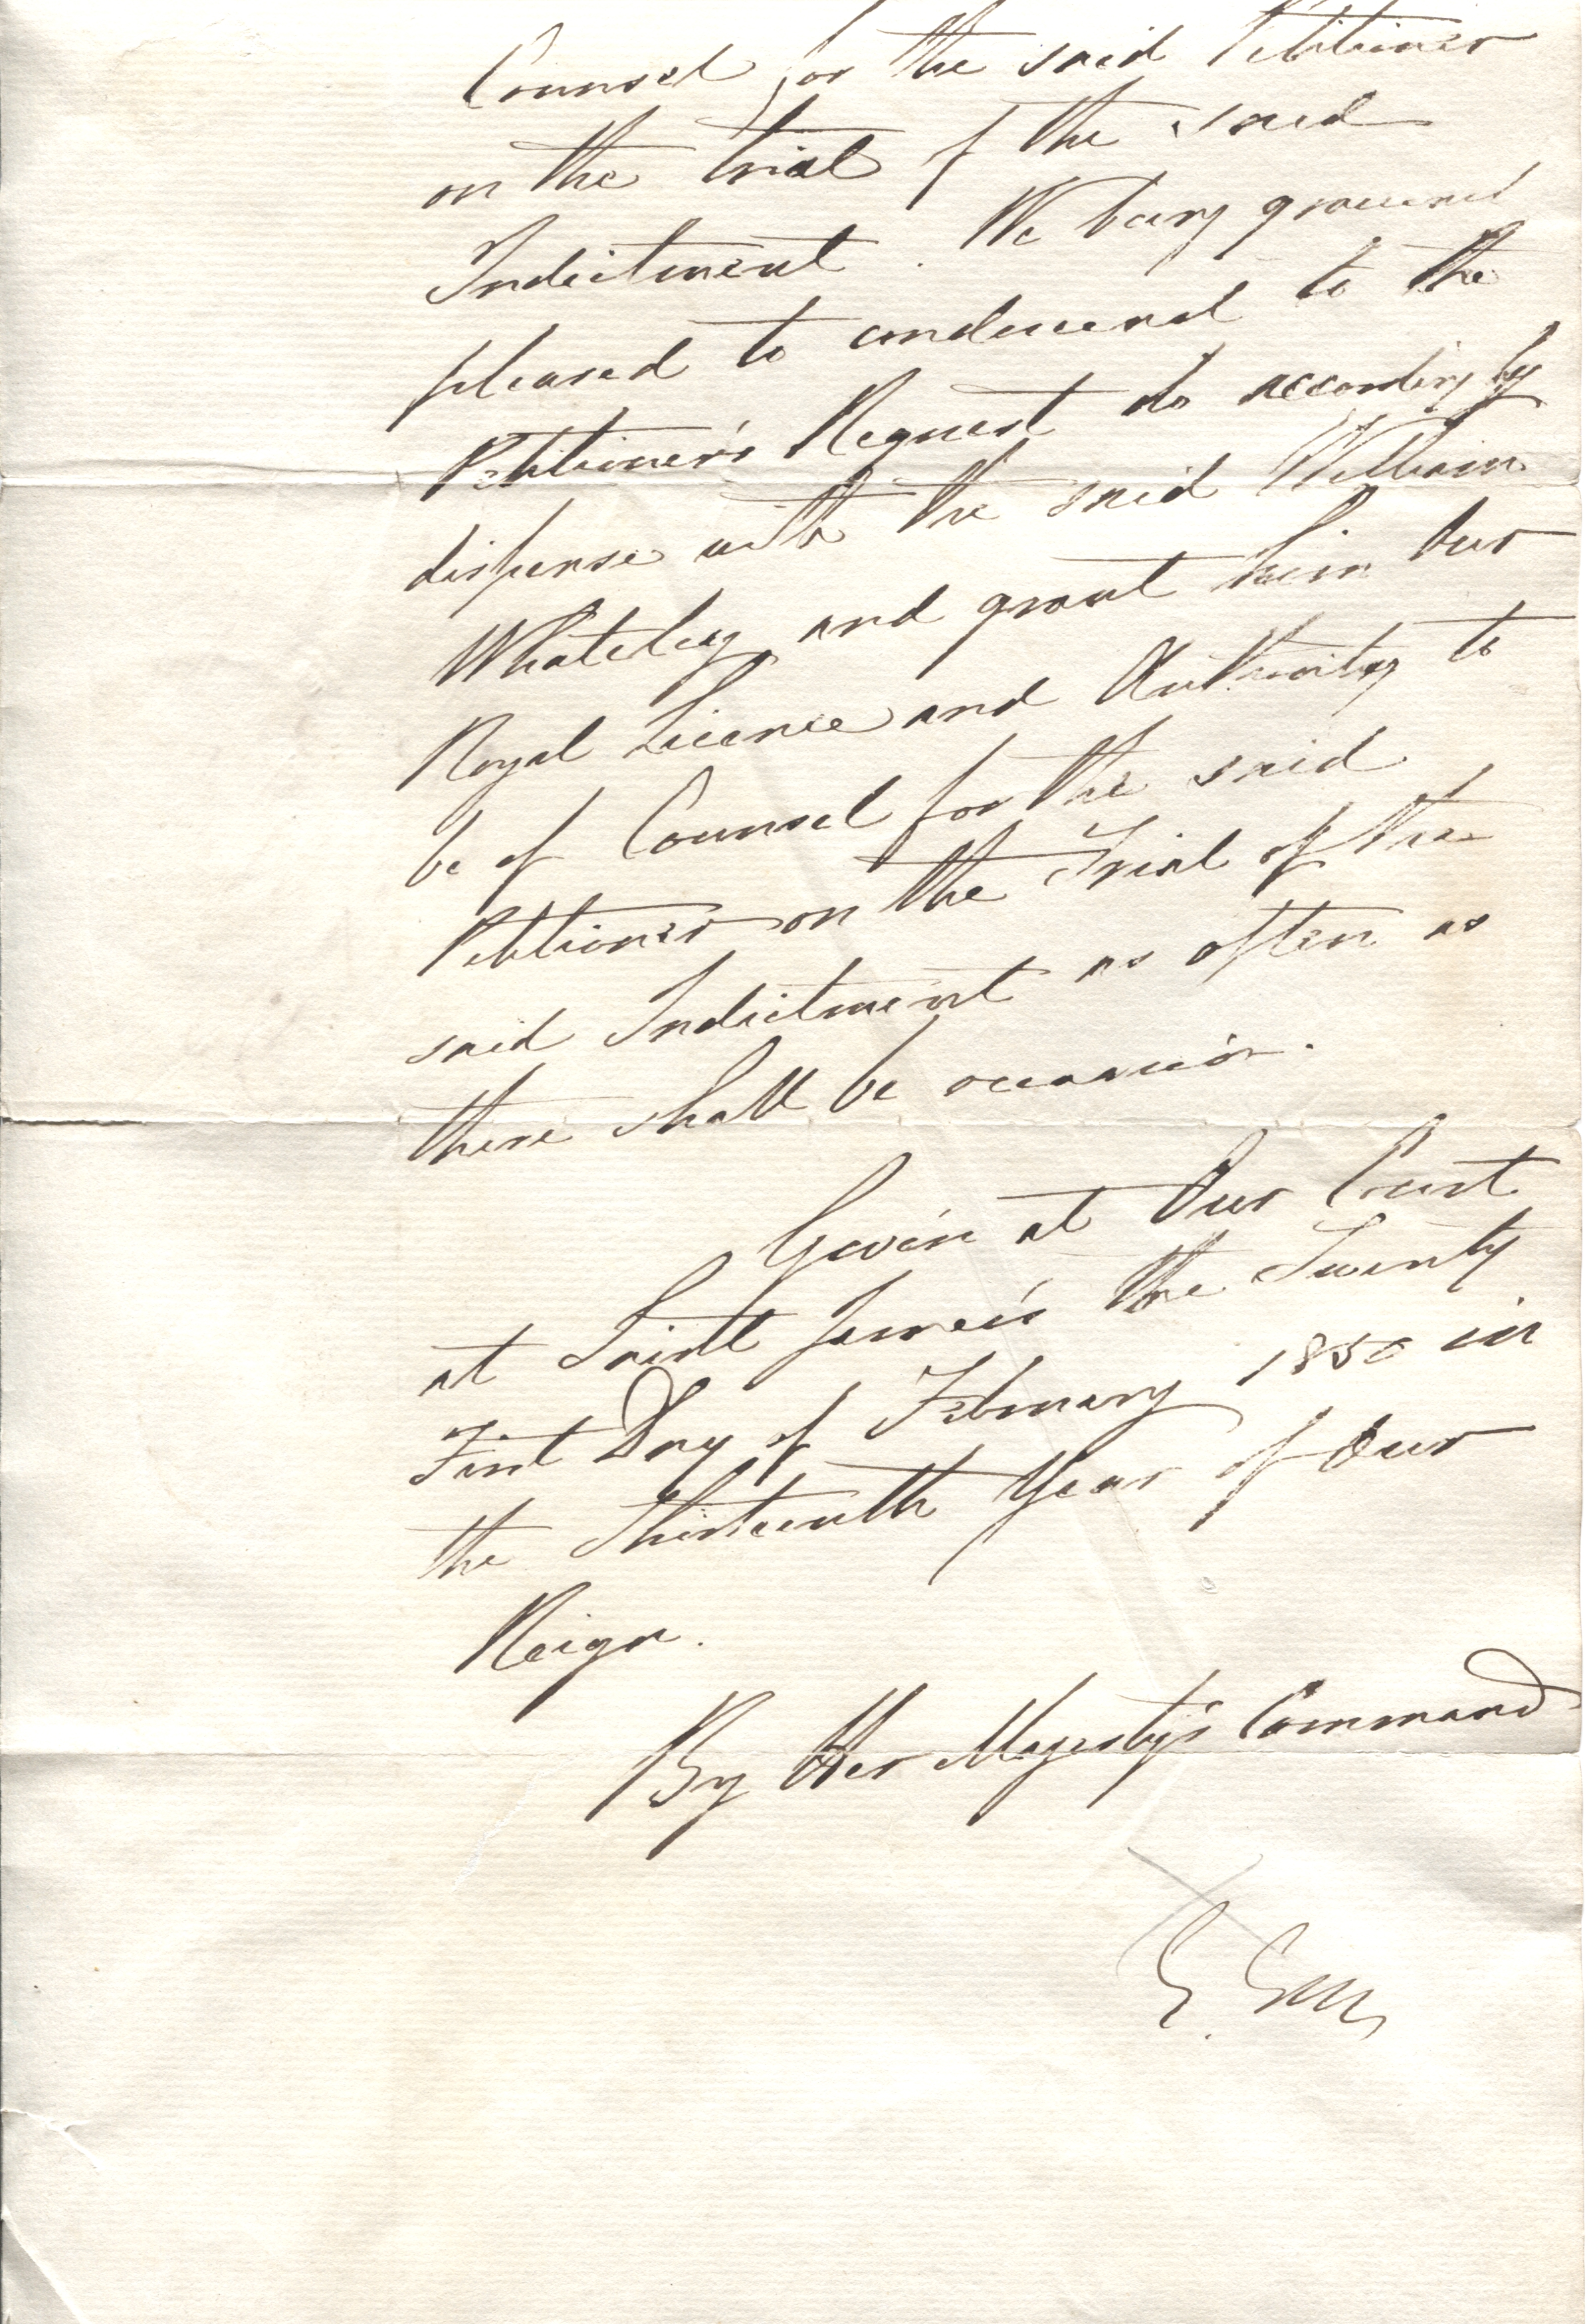 Counsel for the said Petitioner
on the trial of the said
Indictment. We being graciously
pleased to condescend to the
Petitioner's Request do accordingly
dispense with the said William
Whateley and grant him Our
Royal Licence and Authority to
be of Counsel for the said
Petitioner on the Trial of the
said Indictment as often as
there shall be occasion.
Given at Our Court
at Saint James's the Twenty
First Day of February 1850 in
the Thirteenth Year of Our
Reign.
By Her Majesty's Command
G.